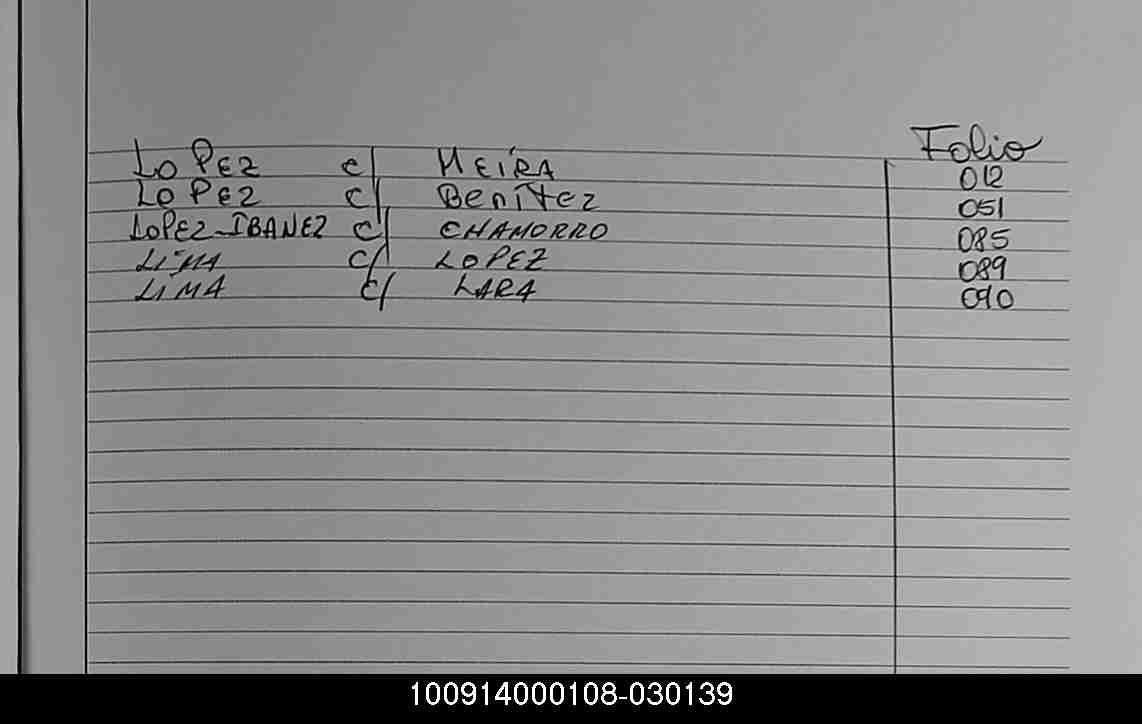 Folio
LOPEZ c/ MEÍRA 012
LOPEZ c/ Benítez 051
LOPEZ-IBANEZ c/ CHAMORRO 085
LIMA c/ LOPEZ 089
LIMA c/ LARA 090
100914000108-030139